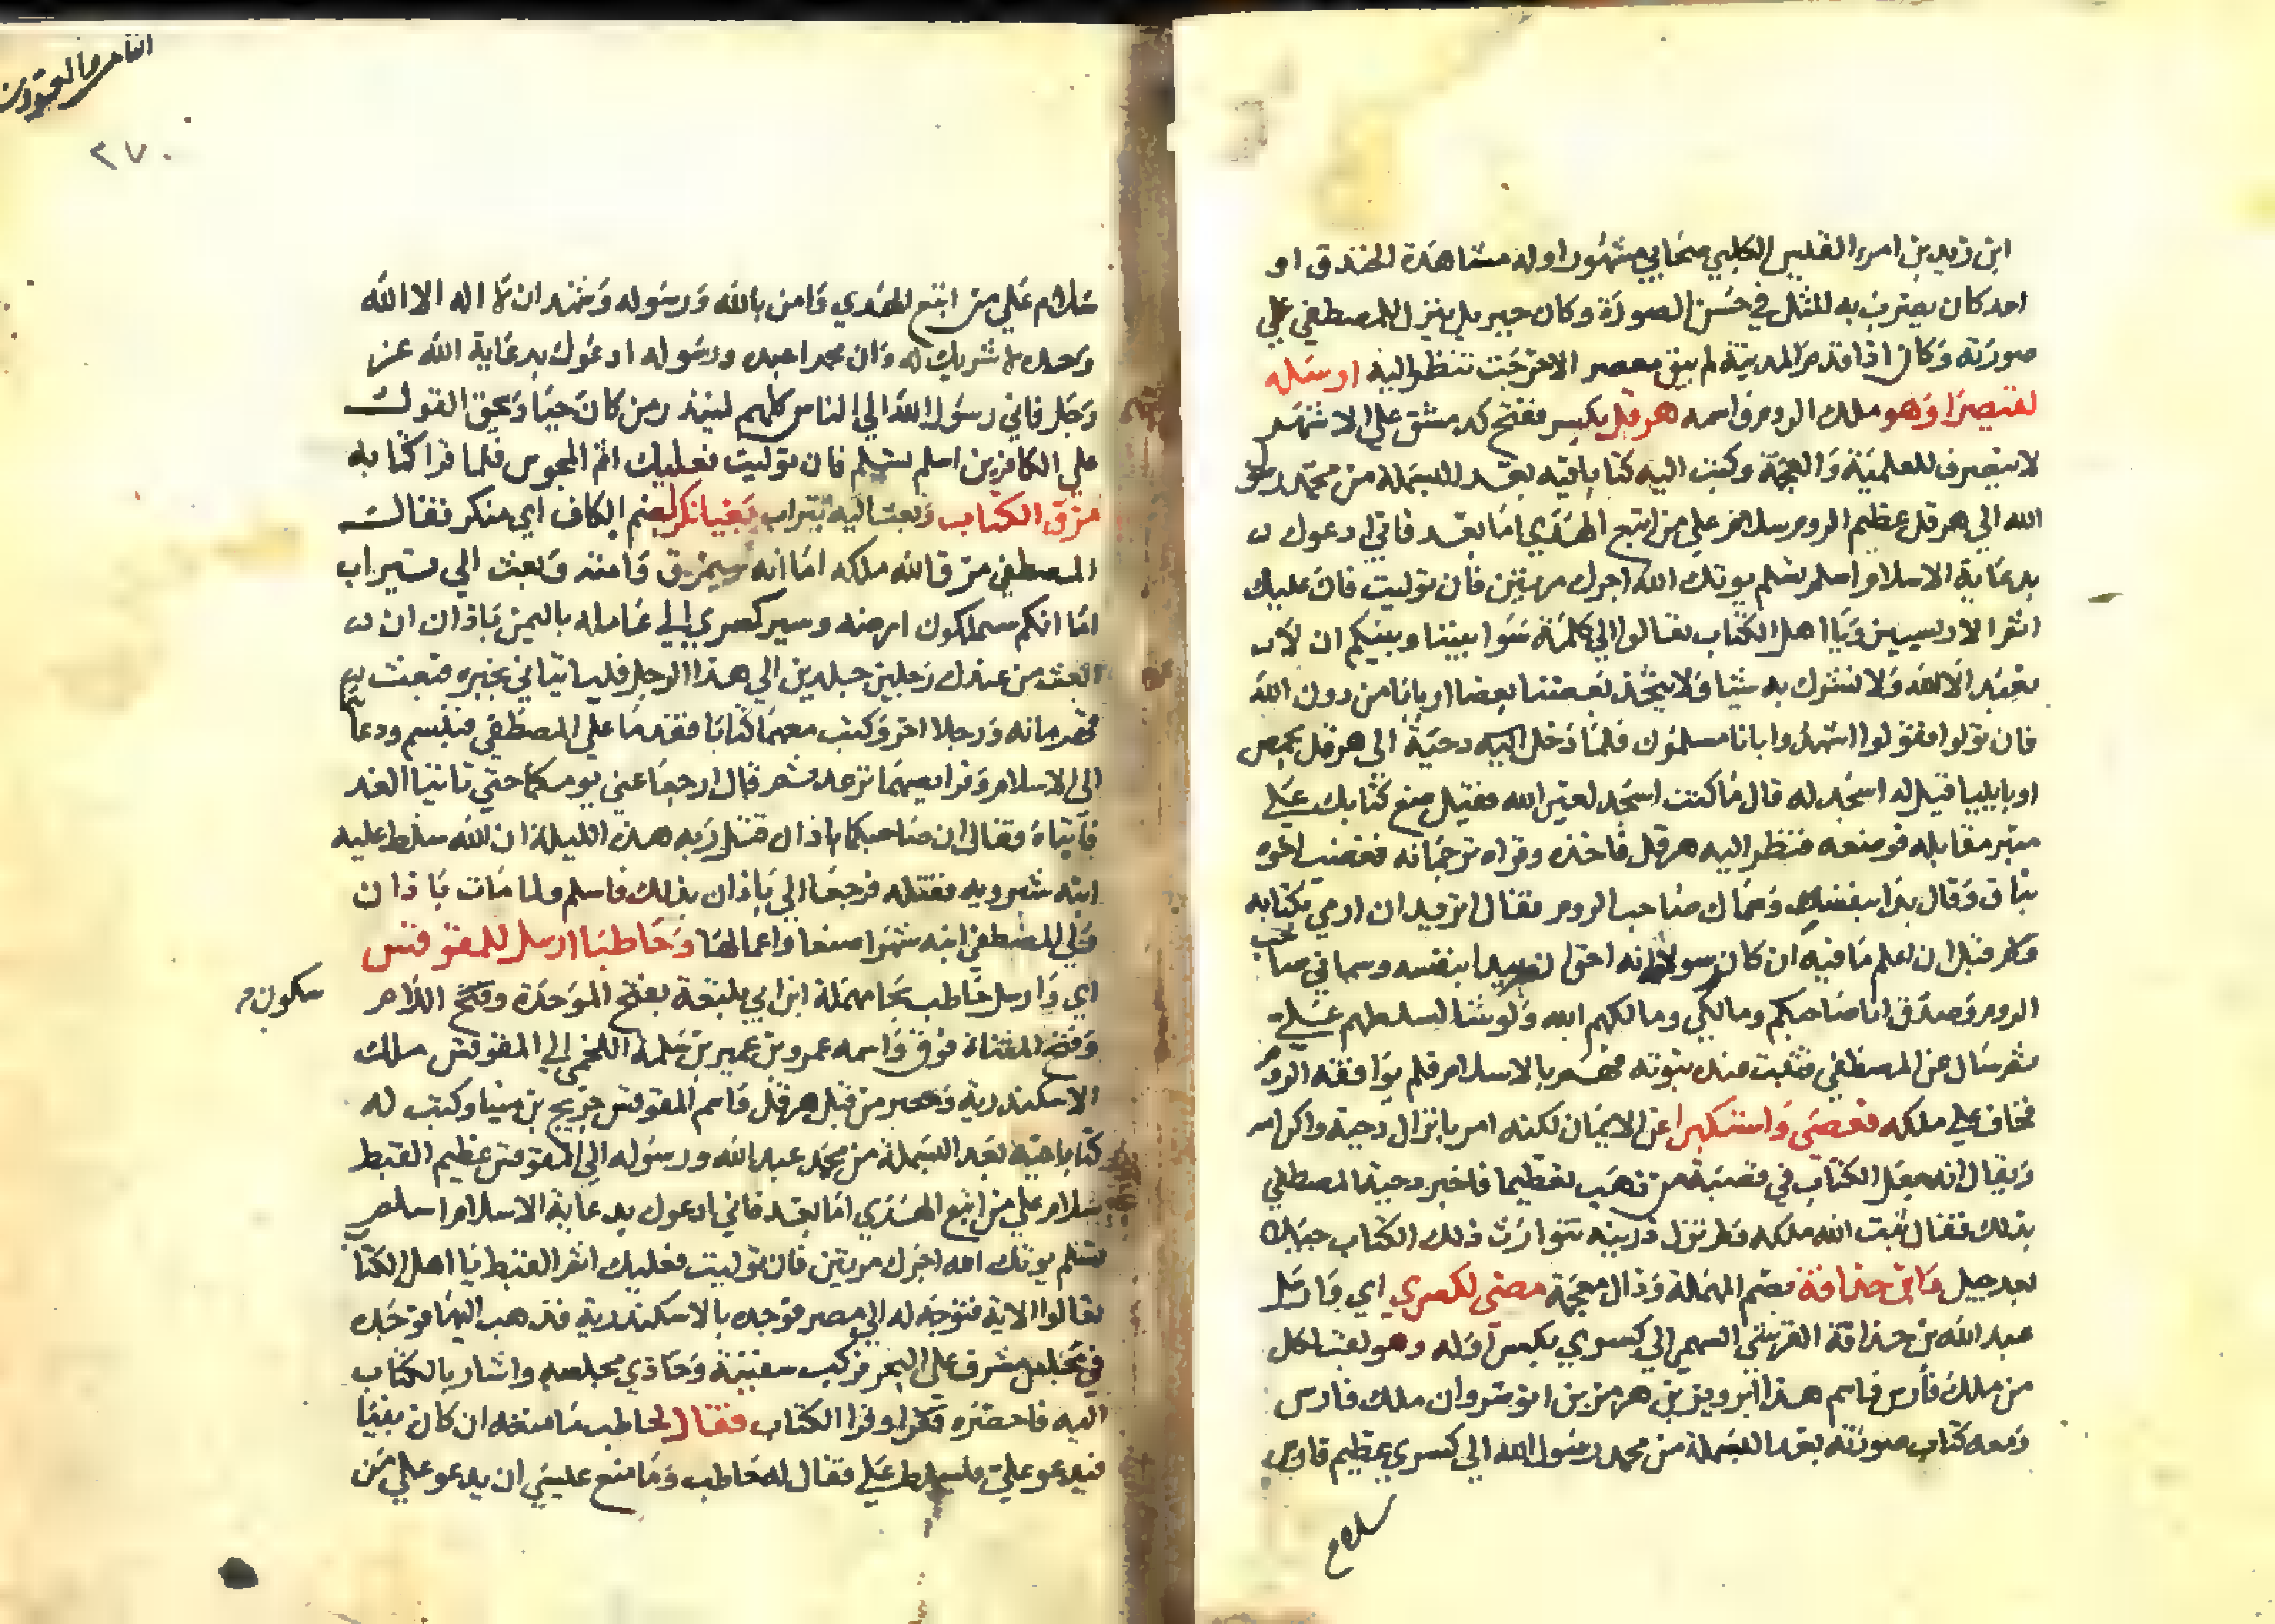 ابن زيد بن امرء القيس الكلبي صحابي مشهور اوله مشاهدة الخندق او
احد كان يضرب به المثل في حسن الصورة وكان جبريل ينزل للمصطفي علي
صورته وكان اذا قدم المدينة لم يبق معصر الا خرجت تنظر اليه ارسله
لقيصرا وهو ملك الروم واسمه هرقل بكسر ففتح كدمشق علي الاشهر
لا ينصرف للعلمية والعجمة وكتب اليه كتابا فيه بعد البسملة من محمد رسول
الله الي هرقل عظيم الروم سلام علي من اتبع الهدي اما بعد فاني ادعوك
بدعاية الاسلام اسلم تسلم يوتك الله اجرك مرتين فان توليت فان عليك
اثم الاريسيين ويا اهل الكتاب تعالوا الي كلمة سوا بيننا وبينكم ان لا
نعبد الا الله ولا نشرك به شيا ولا يتخذ بعضنا بعضا اربابا من دون الله
فان تولوا فقولوا اشهدوا بانا مسلمون فلما دخل اليه دحية الي هرقل بحمص
او بايليا قيل له اسجد له قال ما كنت اسجد لغير الله فقيل ضع كتابك علي
منبر مقابله فوضعه فنظر اليه هرقل فاخذه وقراه ترجمانه فغضب اخوه
يناق وقال بدا بنفسه وسماك صاحب الروم فقال اتريد ان ارمي بكتابه
قبل ان نعلم ما فيه ان كان رسولا انه احق ان يبدا بنفسه وسماني صاحب
الروم وصدق انا صاحبكم ومالكي ومالكهم الله ولو شا لسلطهم علي
ثم سال عن المصطفي فثبت عنده نبوته فهم بالاسلام فلم يوافقه الروم
فخاف علي ملكه فعصي واستكبرا عن الايمان لكنه امر بانزال دحية واكرامه
ويقال انه جعل الكتاب في قصبة من ذهب تعظيما فاخبر دحية المصطفي
بذلك فقال ثبت الله ملكه ولم تزل ذريته تتوارث ذلك الكتاب جيلا
بعد جيل وابن حذافة بضم المهملة وذال معجمة مضي لكسري اي وارسل
عبد الله بن حذافة القرشي السهمي الي كسري بكسر اوله وهو لقب لكل
من ملك فارس واسم هذا ابرويز بن هرمز بن انوشروان ملك فارس
ومعه كتاب صورته بعد البسملة من محمد رسول الله الي كسري عظيم فارس
سلام
٢٧٠
سلام علي من اتبع الهدي وامن بالله ورسوله وشهد ان لا اله الا الله
وحده لا شريك له وان محمدا عبده ورسوله ادعوك بدعاية الله عز
وجل فاني رسول الله الي الناس كلهم لينذر من كان حيا ويحق القول
علي الكافرين اسلم تسلم فان توليت فعليك اثم المجوس فلما قرا كتابه
مزق الكتاب وبعث اليه بتراب بغيا نكرا بضم الكاف اي منكر فقال
المصطفي مزق الله ملكه اما انه سيمزق وامته وبعث الي بتراب
اما انكم ستملكون ارضه وسير كسري الي عامله باليمن باذان ان
ابعث من عندك رجلين جلدين الي هذا الرجل فلياتياني بخبره فبعث
قهرمانه ورجلا اخر وكتب معهما كتابا فقدما علي المصطفي فتبسم ودعا
الي الاسلام وفرايصهما ترعد ثم قال ارجعا عني يومكما حتي تاتينا الغد
فاتياه فقال ان صاحبكما باذان قتل ربه هذه الليلة ان الله سلط عليه
ابنه شيرويه فقتله فرجعا الي باذان بذلك فاسلم ولما مات باذان
ولي المصطفي ابنه شهرا صنعا واعمالها وحاطبا ارسل للمقوقس
اي وارسل حاطب بحا مهملة ابن ابي بلتعة بفتح الموحدة وفتح اللام
سكون
وفتح المثناة فوق واسمه عمرو بن عمير بن سلمة اللخمي الي المقوقس ملك
الاسكندرية ومصر من قبل هرقل واسم المقوقس جريج بن مينا وكتب له
كتابا فيه بعد البسملة من محمد عبد الله ورسوله الي المقوقس عظيم القبط
سلام علي من اتبع الهدي اما بعد فاني ادعوك بدعاية الاسلام اسلم
تسلم يوتك الله اجرك مرتين فان توليت فعليك اثم القبط يا اهل الكتاب
تعالوا الاية فتوجه له الي مصر فوجده بالاسكندرية فذهب اليها فوجده
في مجلس مشرف علي البحر فركب سفينة وحاذي مجلسه واشار بالكتاب
اليه فاحضره فلما قرا الكتاب فقال لحاطب ما منعه ان كان نبيا
فيدعو علي فيسلط علي فقال له حاطب وما منع عيسي ان يدعو علي من